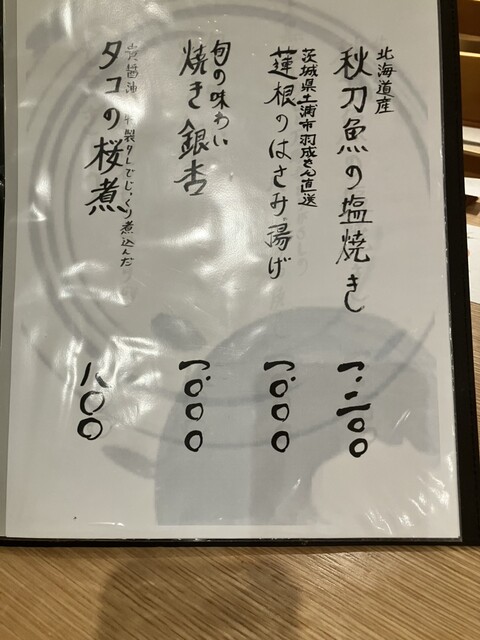 北海道産
秋刀魚の塩焼き
一、二〇〇
茨城県土浦市羽成さん直送
蓮根のはさみ揚げ
一、〇〇〇
旬の味わい
焼き銀杏
一、〇〇〇
製タレでじっくり煮込んだ
タコの桜煮
八〇〇